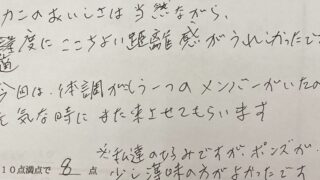 カニのおいしさは当然ながら、
適度にここちよい距離感がうれしかったで
今回は、体調がもう一つのメンバーがいたの
元気な時にまた来させてもらいます
10点満点で 8 点
※私達の好みですが、ポンズが、
少し薄味の方がよかったです